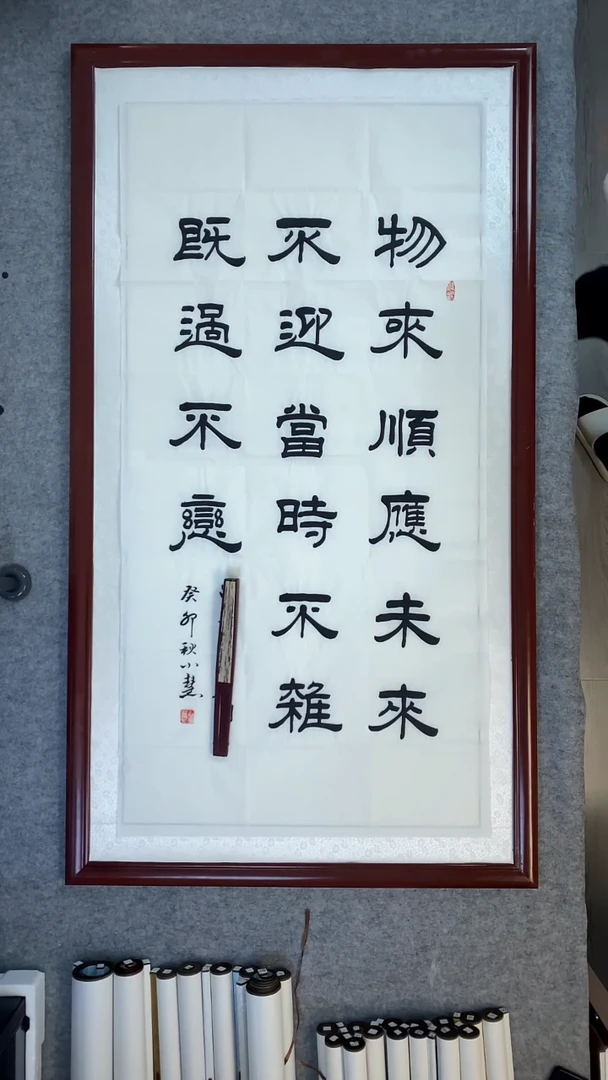 物來順應未來
不迎當時不雜
既過不戀
癸卯秋小慧